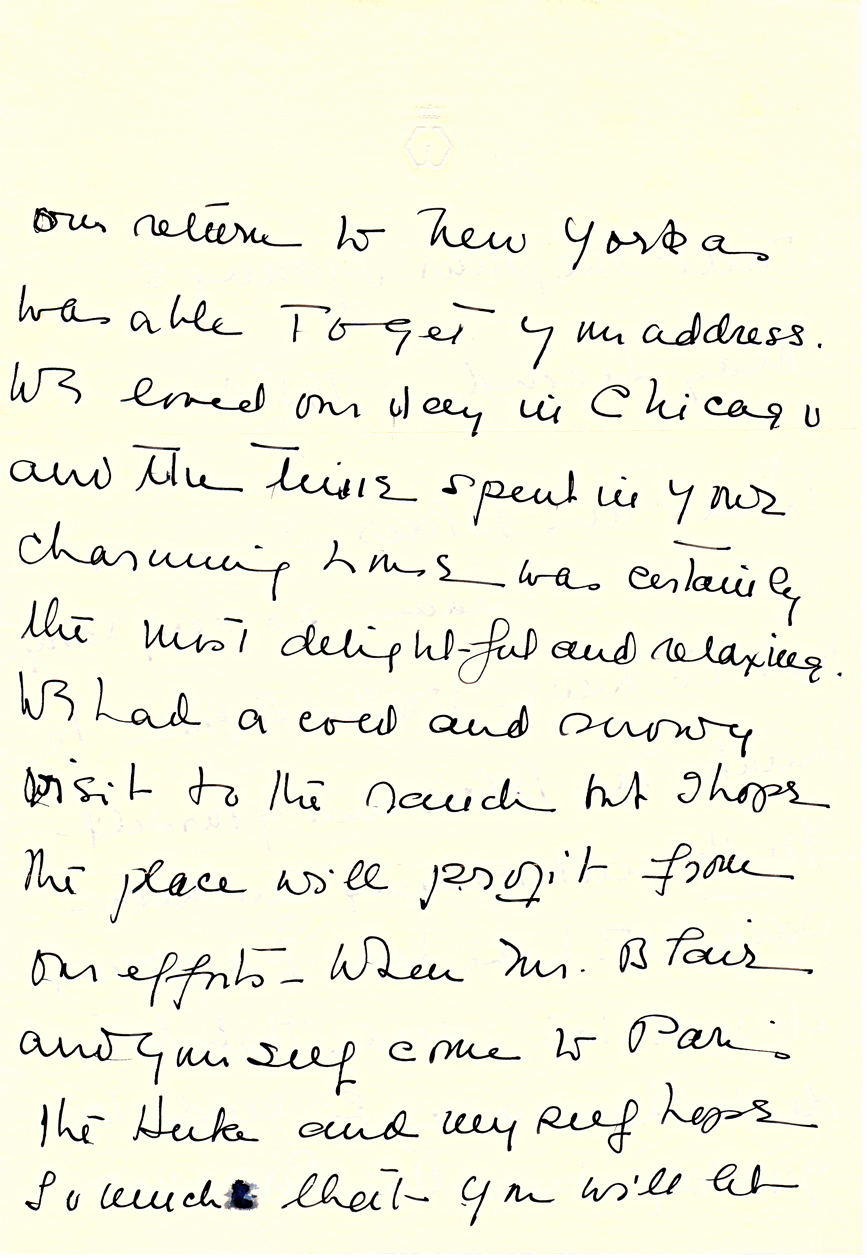 our return to New York as
was able to get your address.
We loved our day in Chicago
and the time spent in your
charming house was certainly
the most delight-ful and relaxing.
We had a cold and snowy
visit to the ranch but I hope
the place will profit from
our efforts – When Mr. Blair
and yourself come to Paris
the Duke and myself hope
so much that you will let